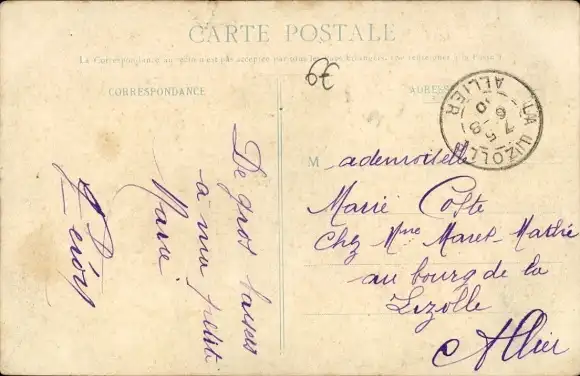 CARTE POSTALE
La Correspondance au recto n'est pas acceptée par tous les pays étrangers,
CORRESPONDANCE
ADRESSE
LA LIZOLLE
ALLIER
De gros baisers
à ma petite
Marie
M ademoiselle
Marie Coste
Chez Mme Maret-Mathé
au bourg de la
Lizolle
Allier